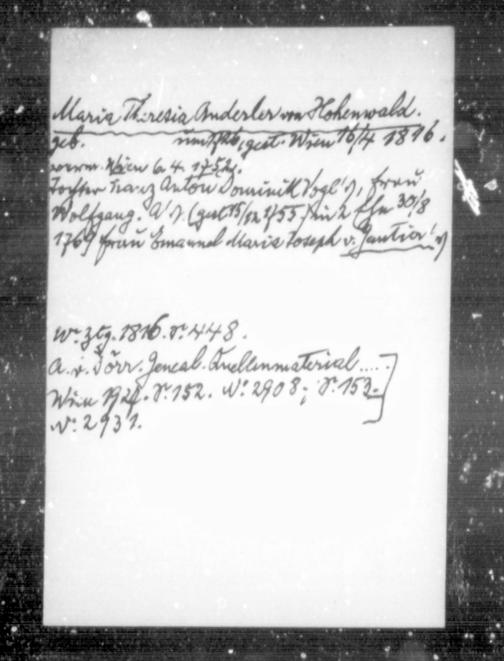 Maria Theresia Anderler von Hohenwald.
geb. um 1726, gest. Wien 16/4 1816.
verm. Wien 6. 4. 1752.
Tochter Franz Anton Dominik Vogl's, Frau
Wolfgang A's (gest 15/ 1755) in 2 Ehe 30/8
1769 Frau Emanuel Maria Joseph v.
Wr. Ztg. 1816. S. 448.
A. v. Dörr. Geneal. Quellenmaterial ....
Wien 192. S. 152. No. 2908; S. 153.
No. 2931.